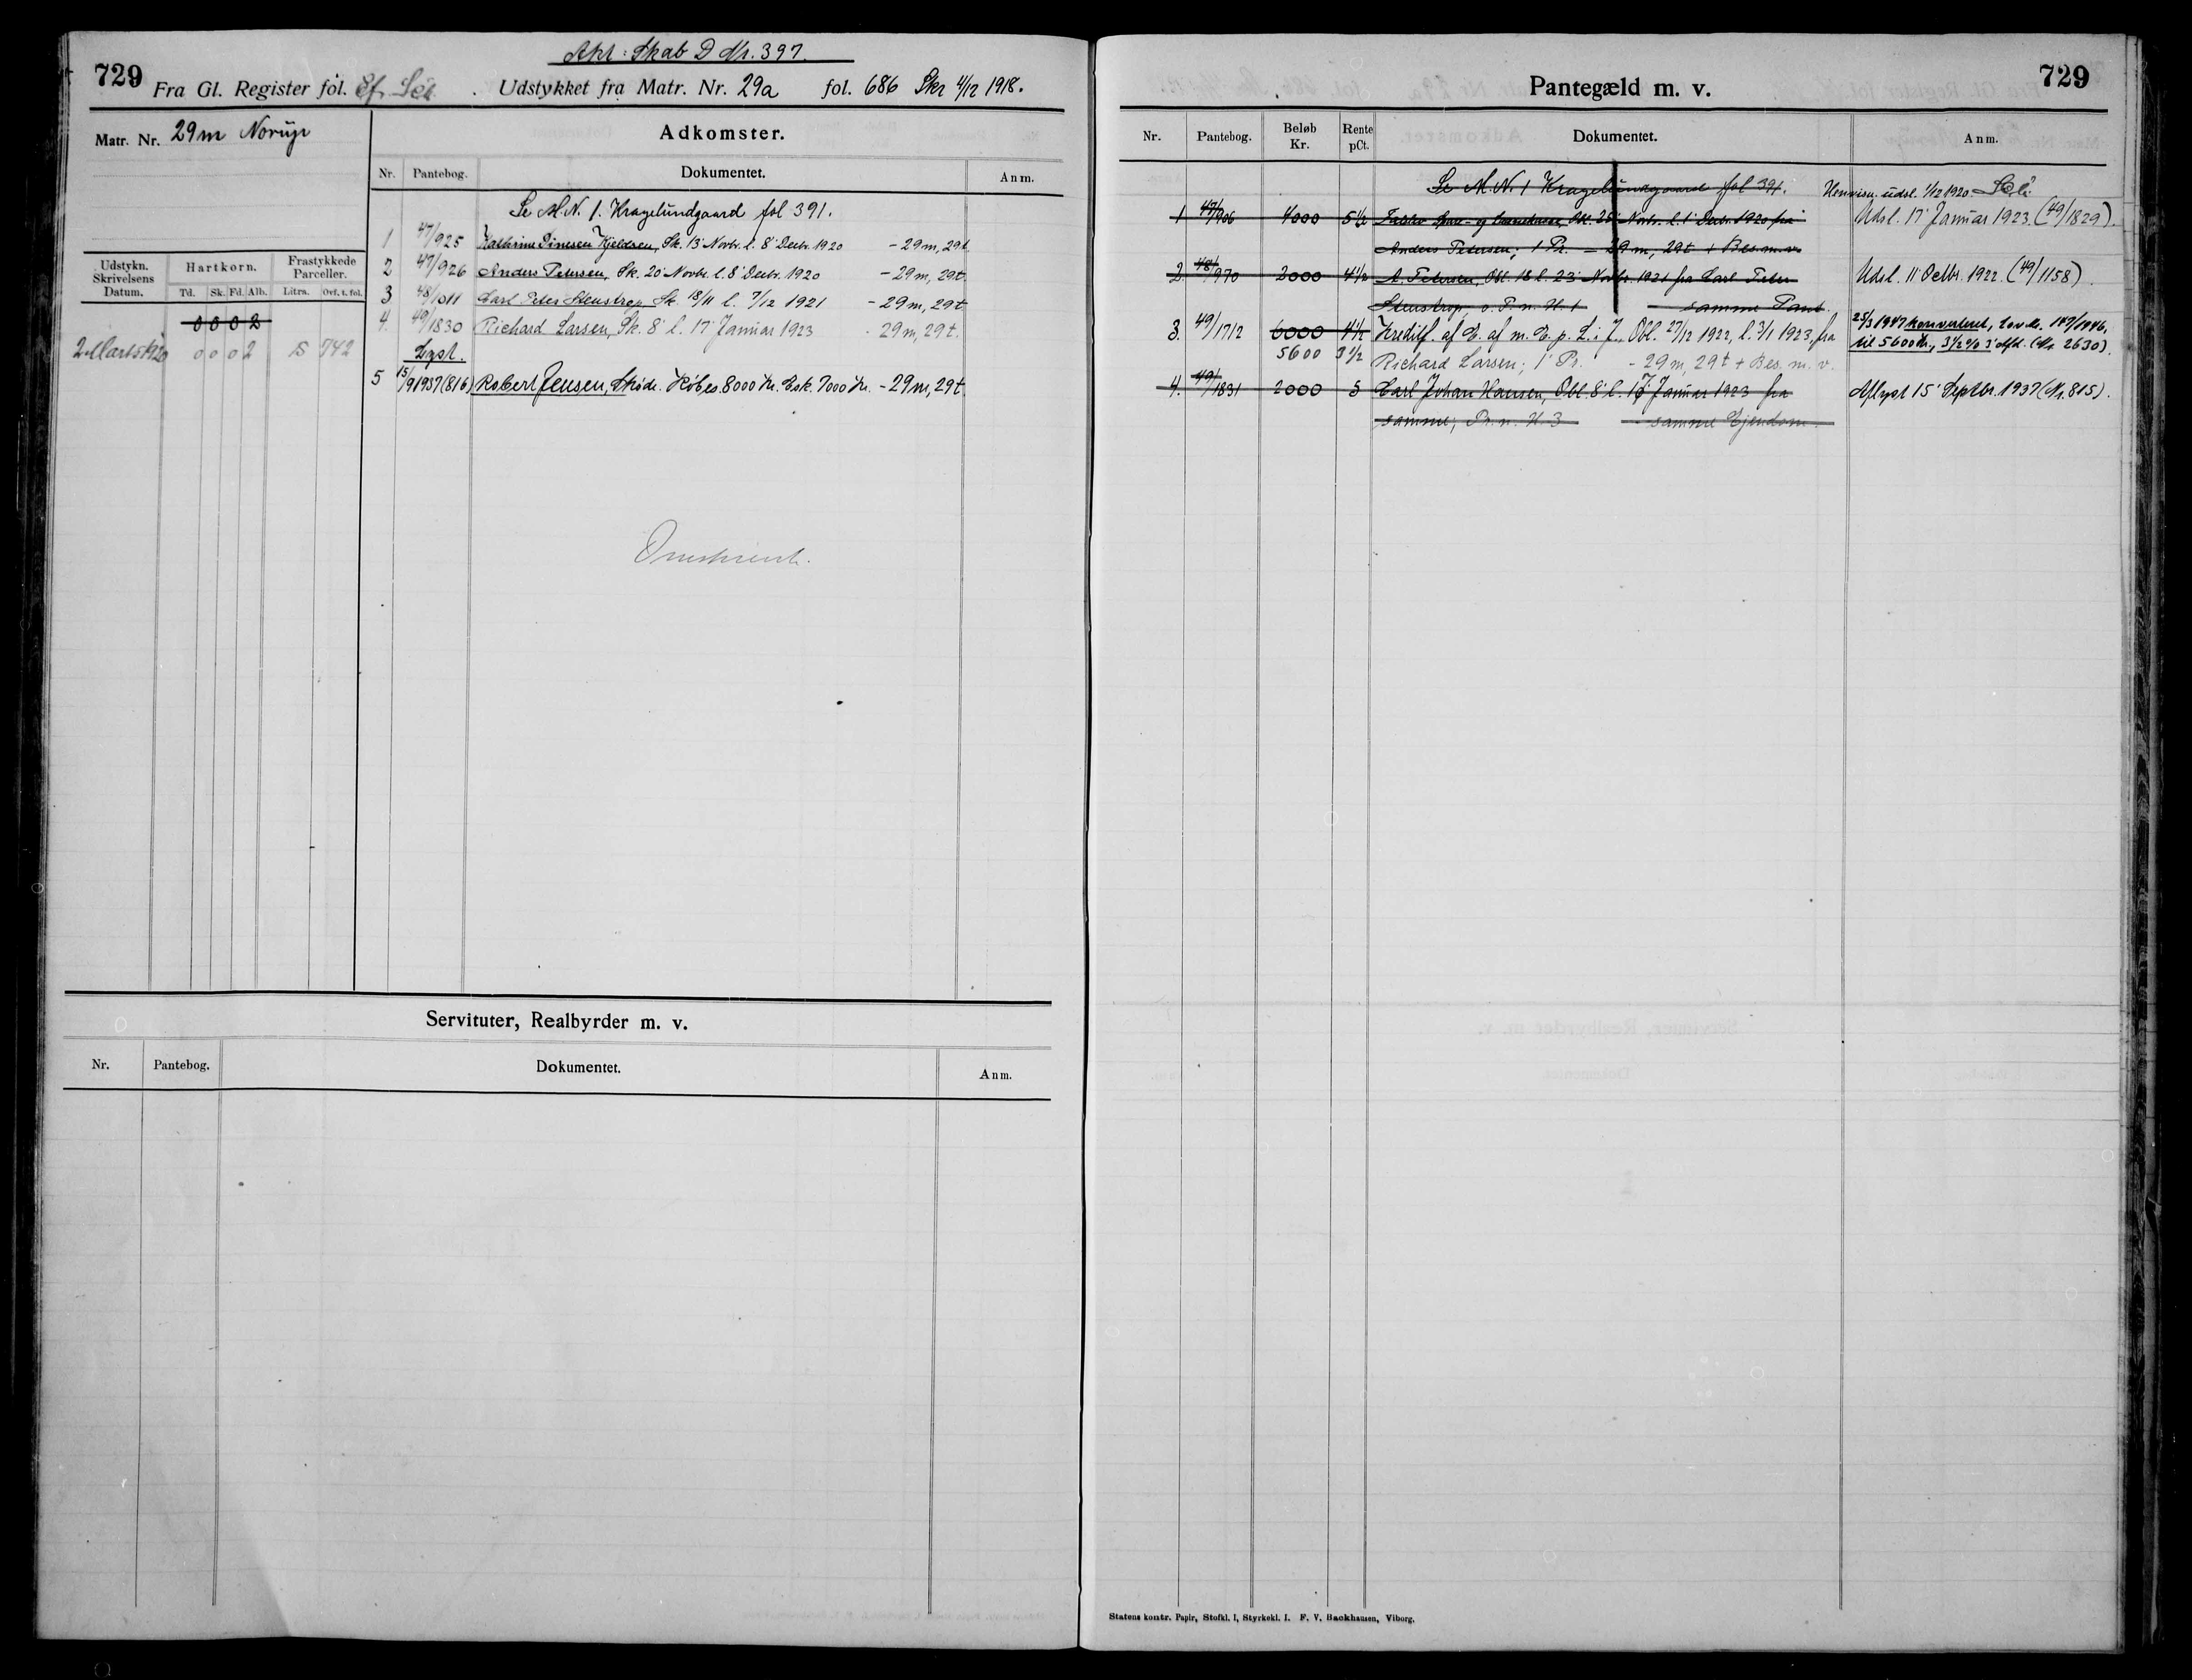 Akt: Skab D Nr. 397.
729 Fra Gl. Register fol. Udstykket fra Matr. Nr. 29a fol. 686 Skr 4/12 1918.
Matr. Nr. 29m Norup
Adkomster.
Nr. Pantebog. Dokumentet. Anm.
Se M.N. 1. Kragelundgaard fol 391.
1 47/925 Kathrine Dinesen Kjeldsen, Sk. 13' Novbr. l. 8' Decbr. 1920 - 29m, 29t
2 47/926 Anders Petersen, Sk. 20' Novbr. l. 8' Decbr. 1920 - 29m, 29t.
3 48/1011 Carl Peter Stenstrop, Sk. 18/11 l. 7/12 1921 - 29m, 29t
4. 49/1830 Richard Larsen, Sk. 8' l. 17' Januar 1923 - 29m, 29t.
Lyst.
5 15/9 1937 (816) Robert Jensen, Skøde. Købes. 8000 Kr. Esk. 7000 Kr. - 29m, 29t.
Udstykn. Skrivelsens Datum. Hartkorn. Frastykkede Parceller.
Td. Sk. Fd. Alb. Litra. Ovf. t. fol.
0 0 0 2
2 Marts 1920 0 0 0 2 s 742
Omskrevet.
Servituter, Realbyrder m. v.
Nr. Pantebog. Dokumentet. Anm.
Pantegæld m. v. 729
Nr. Pantebog. Beløb Kr. Rente pCt. Dokumentet. Anm.
Se M.N. 1 Kragelundgaard fol 391. Henvisn. udsl. 1/12 1920.
1 47/906 4000 5 1/2 Spare- og Laanekasse, Obl. 25' Novbr. l. 1' Decbr. 1920 fra Udsl. 17' Januar 1923. (49/1829).
Anders Petersen; 1' Pr. - 29m, 29t + Bes. m. v.
2. 48/970 2000 4 1/2 A. Petersen, Obl. 18' l. 23' Novbr. 1921 fra Carl Peter Udsl. 11' Octbr. 1922. (49/1158).
Stenstrop, o. P. n. H. 1 - samme Pant.
3. 49/1712 6000 4 1/2 Kreditf. af E. af m. E. p. L. i J., Obl. 27/12 1922, l. 3/1 1923, fra 25/3 1947 konverteret, Lov Nr. 147/1946,
5600 3 1/2 Richard Larsen; 1' Pr. - 29m, 29t + Bes. m. v. til 5600 Kr., 3 1/2 % 3' Afd. (Nr. 2630).
4. 49/1831 2000 5 Carl Johan Hansen, Obl. 8' l. 17' Januar 1923 fra Aflyst 15' Septbr. 1937 (Nr. 815).
samme; Pr. n. H. 3 - samme Ejendom.
Statens kontr. Papir, Stofkl. 1, Styrkekl. I. F. V. Backhausen, Viborg.